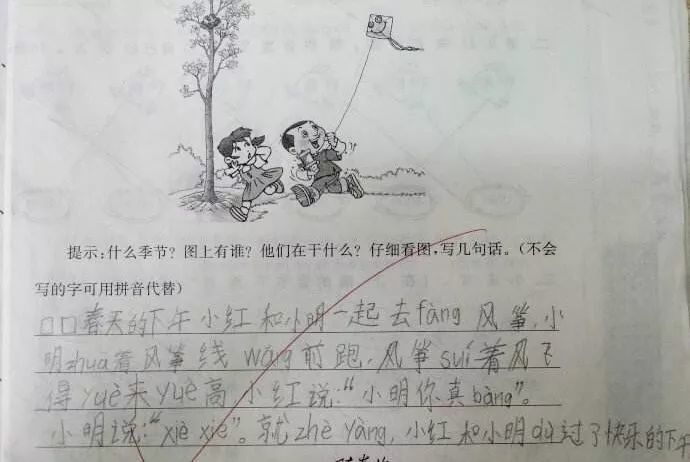 提示:什么季节?图上有谁?他们在干什么?仔细看图,写几句话。(不会
写的字可用拼音代替)
□□春天的下午小红和小明一起去fàng风筝,小
明zhua着风筝线wǎng前跑,风筝suí着风飞
得yuè来yuè高,小红说:“小明你真bàng”。
小明说:“xiè xiè”。就zhè yàng,小红和小明dù过了快乐的下午